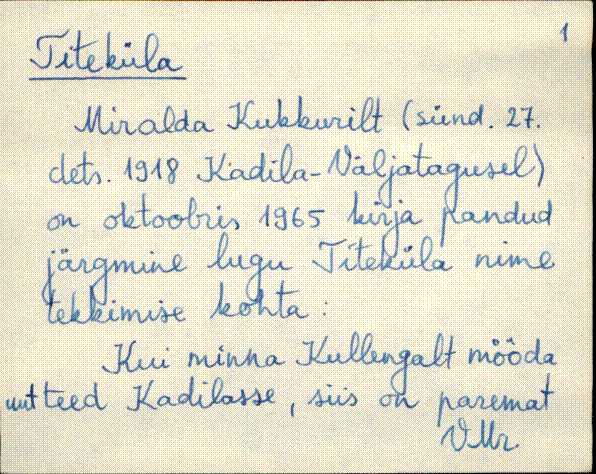 1
Titeküla
Miralda Kukkurilt (sünd. 27.
dets. 1918 Kadila-Väljatagusel)
on oktoobris 1965 kirja pandud
järgmine lugu Titeküla nime
tekkimise kohta:
Kui minna Kullengalt mööda
uut teed Kadilasse, siis on paremat
VMr.